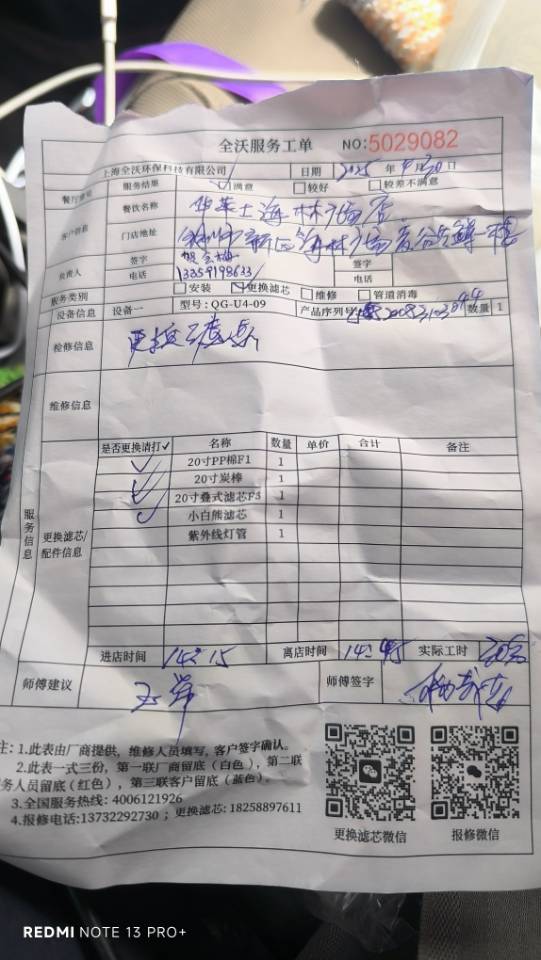 全沃服务工单 NO:5029082
上海全沃环保科技有限公司 日期 2025 年 4 月 30 日
服务结果 满意 较好 较差不满意
客户信息 餐饮名称 华莱士海林广场店
门店地址
负责人 签字 签字
电话 13359198633 电话
服务类别 安装 更换滤芯 维修 管道消毒
设备信息 设备一 型号：QG-U4-09 产品序列号 数量 1
检修信息 更换
维修信息
服务信息 更换滤芯/配件信息
是否更换请打✓ 名称 数量 单价 合计 备注
✓ 20寸PP棉F1 1
✓ 20寸炭棒 1
✓ 20寸叠式滤芯F3 1
✓ 小白熊滤芯 1
紫外线灯管 1
进店时间 14:15 离店时间 14:45 实际工时
师傅建议 师傅签字
注：1.此表由厂商提供，维修人员填写，客户签字确认。
2.此表一式三份，第一联厂商留底（白色），第二联
务人员留底（红色），第三联客户留底（蓝色）。
3.全国服务热线：4006121926
4.报修电话:13732292730；更换滤芯: 18258897611
更换滤芯微信 报修微信
REDMI NOTE 13 PRO+